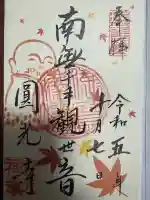 奉拝
令和五年
十一月七日
南無千手観世音
圓光寺